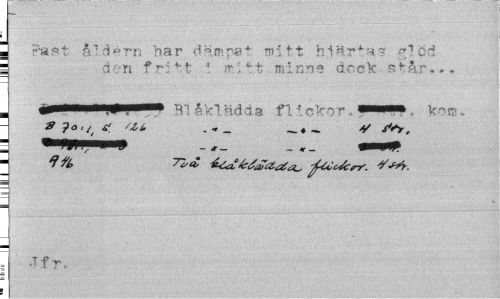 Fast åldern har dämpat mitt hjärtas glöd
den fritt i mitt minne dock står...
Blåklädda flickor. kom.
B 70:1, s. 126 -"- -"- 4 str.
-"- -"-
946 Två blåklädda flickor. 4 str.
Jfr.